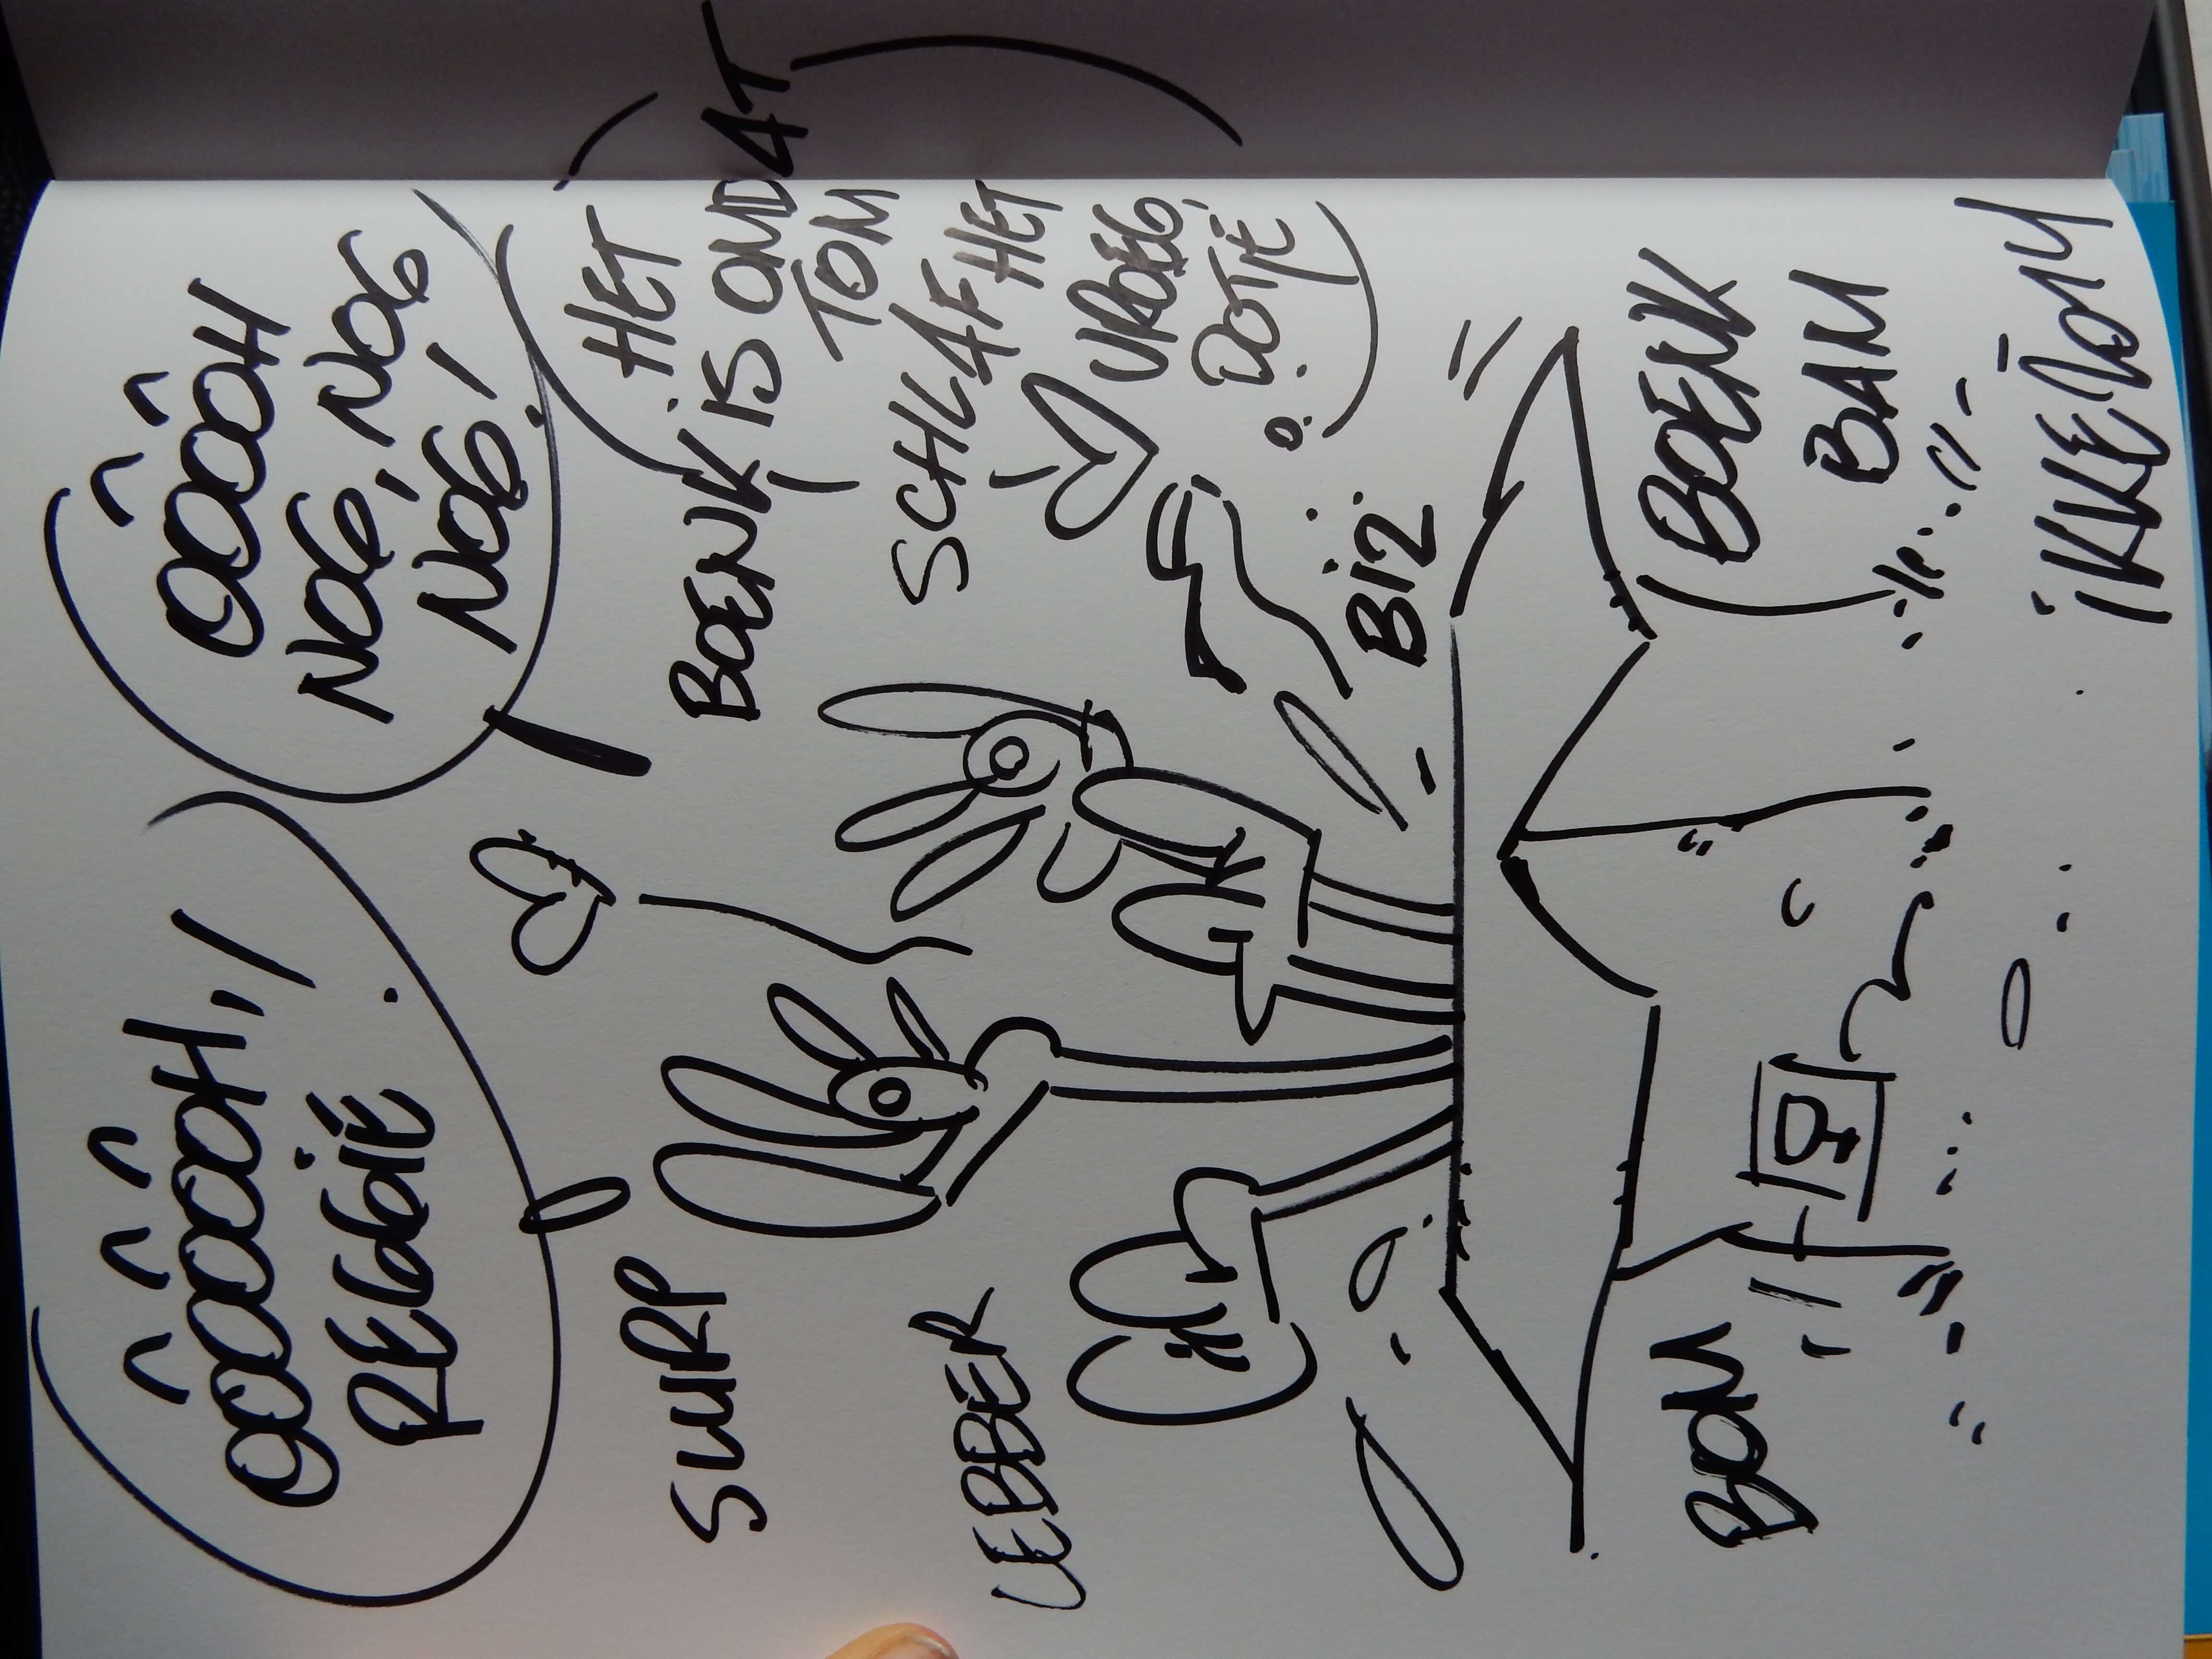 OÔÔÔÔOH,
REGGIE!
OÔÔOH
NOG, NOG
NOG!
SLURP
BOENK
HET
IS OMDAT
TOM
SCHLAF HET
VROEG,
DOTJE
LEBBER
BIZ
BOM
BOENK
BAM
IKKE 2014